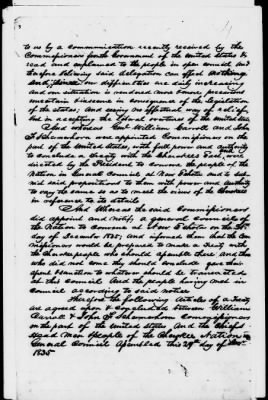 to us by a communication recently received by the
Commissioners from the Government of the United States to
read and explained to the people in open council and
therefore believing said delegation can effect nothing
and since our difficulties are daily increasing
and our situation is rendered more & more precarious
uncertain & insecure in consequence of the legislation
of the states; and seeing no effectual way of relief
but in accepting the liberal overtures of the United States
And whereas Genl William Carroll and John
F Schermerhorn were appointed Commissioners on the
part of the United States, with full power and authority
to conclude a treaty with the Cherokees East, and were
directed by the President to convene the people of the
Nation in General Council at New Echota and to sub
mit said propositions to them with power and authority
to vary the same so as to meet the views of the Cherokees
in reference to its details
And Whereas the said Commissioners
did appoint and notify a general council of
the Nation to convene at New Echota on the 21st
day of December 1835; and informed them that the Com
missioners would be prepared to make a treaty with
the Cherokee people who should assemble there and those
who did not come they should conclude gave their
assent & sanction to whatever should be transacted
at this council. And the people having met in
Council according to said notice.
Therefore the following Articles of a Treaty
are agreed upon & concluded between William
Carroll & John F Schermerhorn Commissioners
on the part of the United States And the Chiefs
Head Men & People of the Cherokee Nation in
General Council Assembled this 29th day of Decr
1835